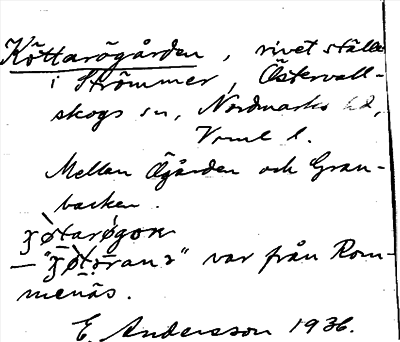 Köttarögården, rivet ställe
i Strömmer, Östervall-
skogs sn, Nordmarks hd,
Vrml l.
Mellan Ögården och Gran-
backen.
ʒøtarøgọɴ
— "ʒøtørans" var från Rom-
menäs.
E. Andersson 1936.